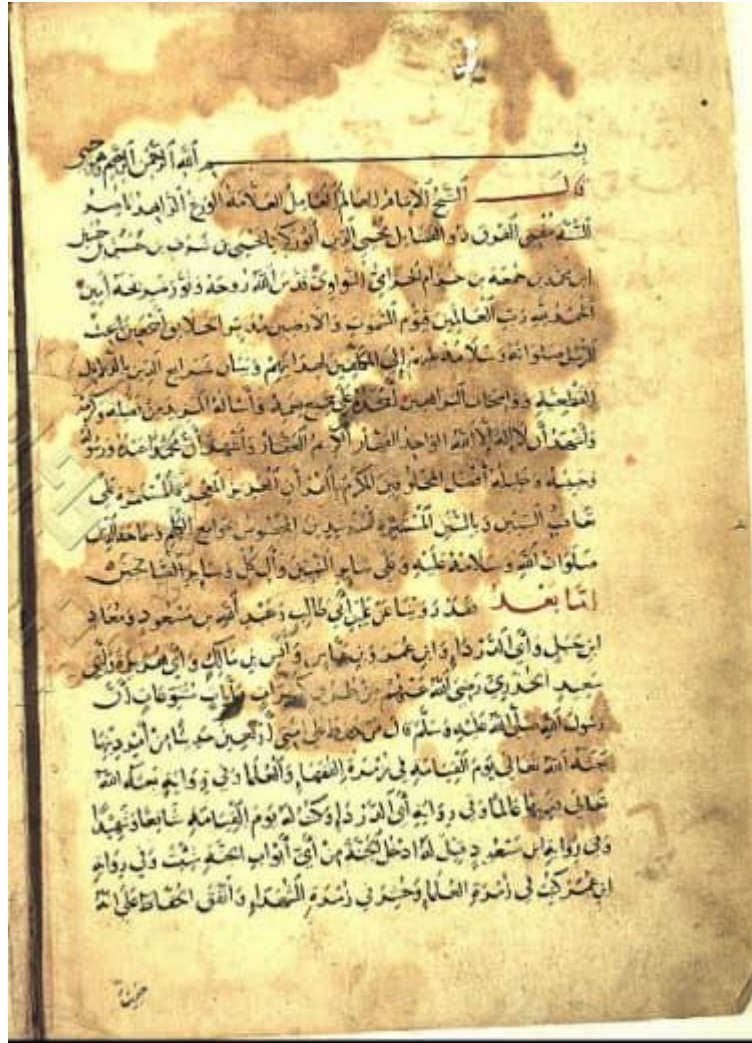 بسم الله الرحمن الرحيم
قال الشيخ الإمام العالم العامل العلامة الورع الزاهد ناصر
السنة مفتي الفرق ذو الفضايل محيي الدين أبو زكريا يحيى بن شرف بن حسن بن حسين
ابن محمد بن جمعة بن حزام الحزامي النواوي قدس الله روحه ونور ضريحه آمين
الحمد لله رب العالمين قيوم السموات والارضين مدبر الخلايق أجمعين باعث
الرسل صلواته وسلامه عليهم إلى المكلفين لهدايتهم وبيان شرايع الدين بالدلايل
القطعية وواضحات البراهين أحمده على جميع نعمه وأسأله المزيد من فضله وكرمه
وأشهد أن لا إله إلا الله الواحد القهار الكريم الغفار وأشهد أن محمدا عبده ورسوله
وحبيبه وخليله أفضل المخلوقين المكرم بالقرآن العزيز المعجزة المستمرة على
تعاقب السنين وبالسنن المستنيرة للمسترشدين المخصوص بجوامع الكلم وسماحة الدين
صلوات الله وسلامه عليه وعلى ساير النبيين وآل كل وساير الصالحين
أما بعد فقد روينا عن علي بن أبي طالب وعبد الله بن مسعود ومعاذ
ابن جبل وأبي الدرداء وابن عمر وبن عباس وأنس بن مالك وأبي هريرة وأبي
سعيد الخدري رضي الله عنهم من طرق كثيرات روايات متنوعات أن
رسول الله صلى الله عليه وسلم قال من حفظ على أمتي أربعين حديثا من أمر دينها
بعثه الله تعالى يوم القيامة في زمرة الفقهاء والعلماء وفي رواية بعثه الله
تعالى فقيها عالما وفي رواية أبي الدرداء وكنت له يوم القيامة شافعا وشهيدا
وفي رواية ابن مسعود قيل له ادخل الجنة من أي أبواب الجنة شئت وفي رواية
ابن عمر كتب في زمرة العلماء وحشر في زمرة الشهداء واتفق الحفاظ على انه